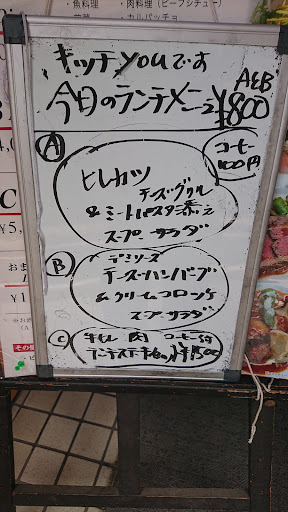 ・魚料理 ・肉料理（ビーフシチュー）
・カルパッチョ
キッチンyouです
今日のランチメニュー
A&B
¥800
コーヒー
100円
A
ヒレカツ
チーズグリル
&ミートパスタ添え
スープ サラダ
B
デミソース
チーズハンバーグ
&クリームコロッケ
スープ サラダ
C
牛ヒレ肉 コーヒー付
ランチステーキ
¥1500